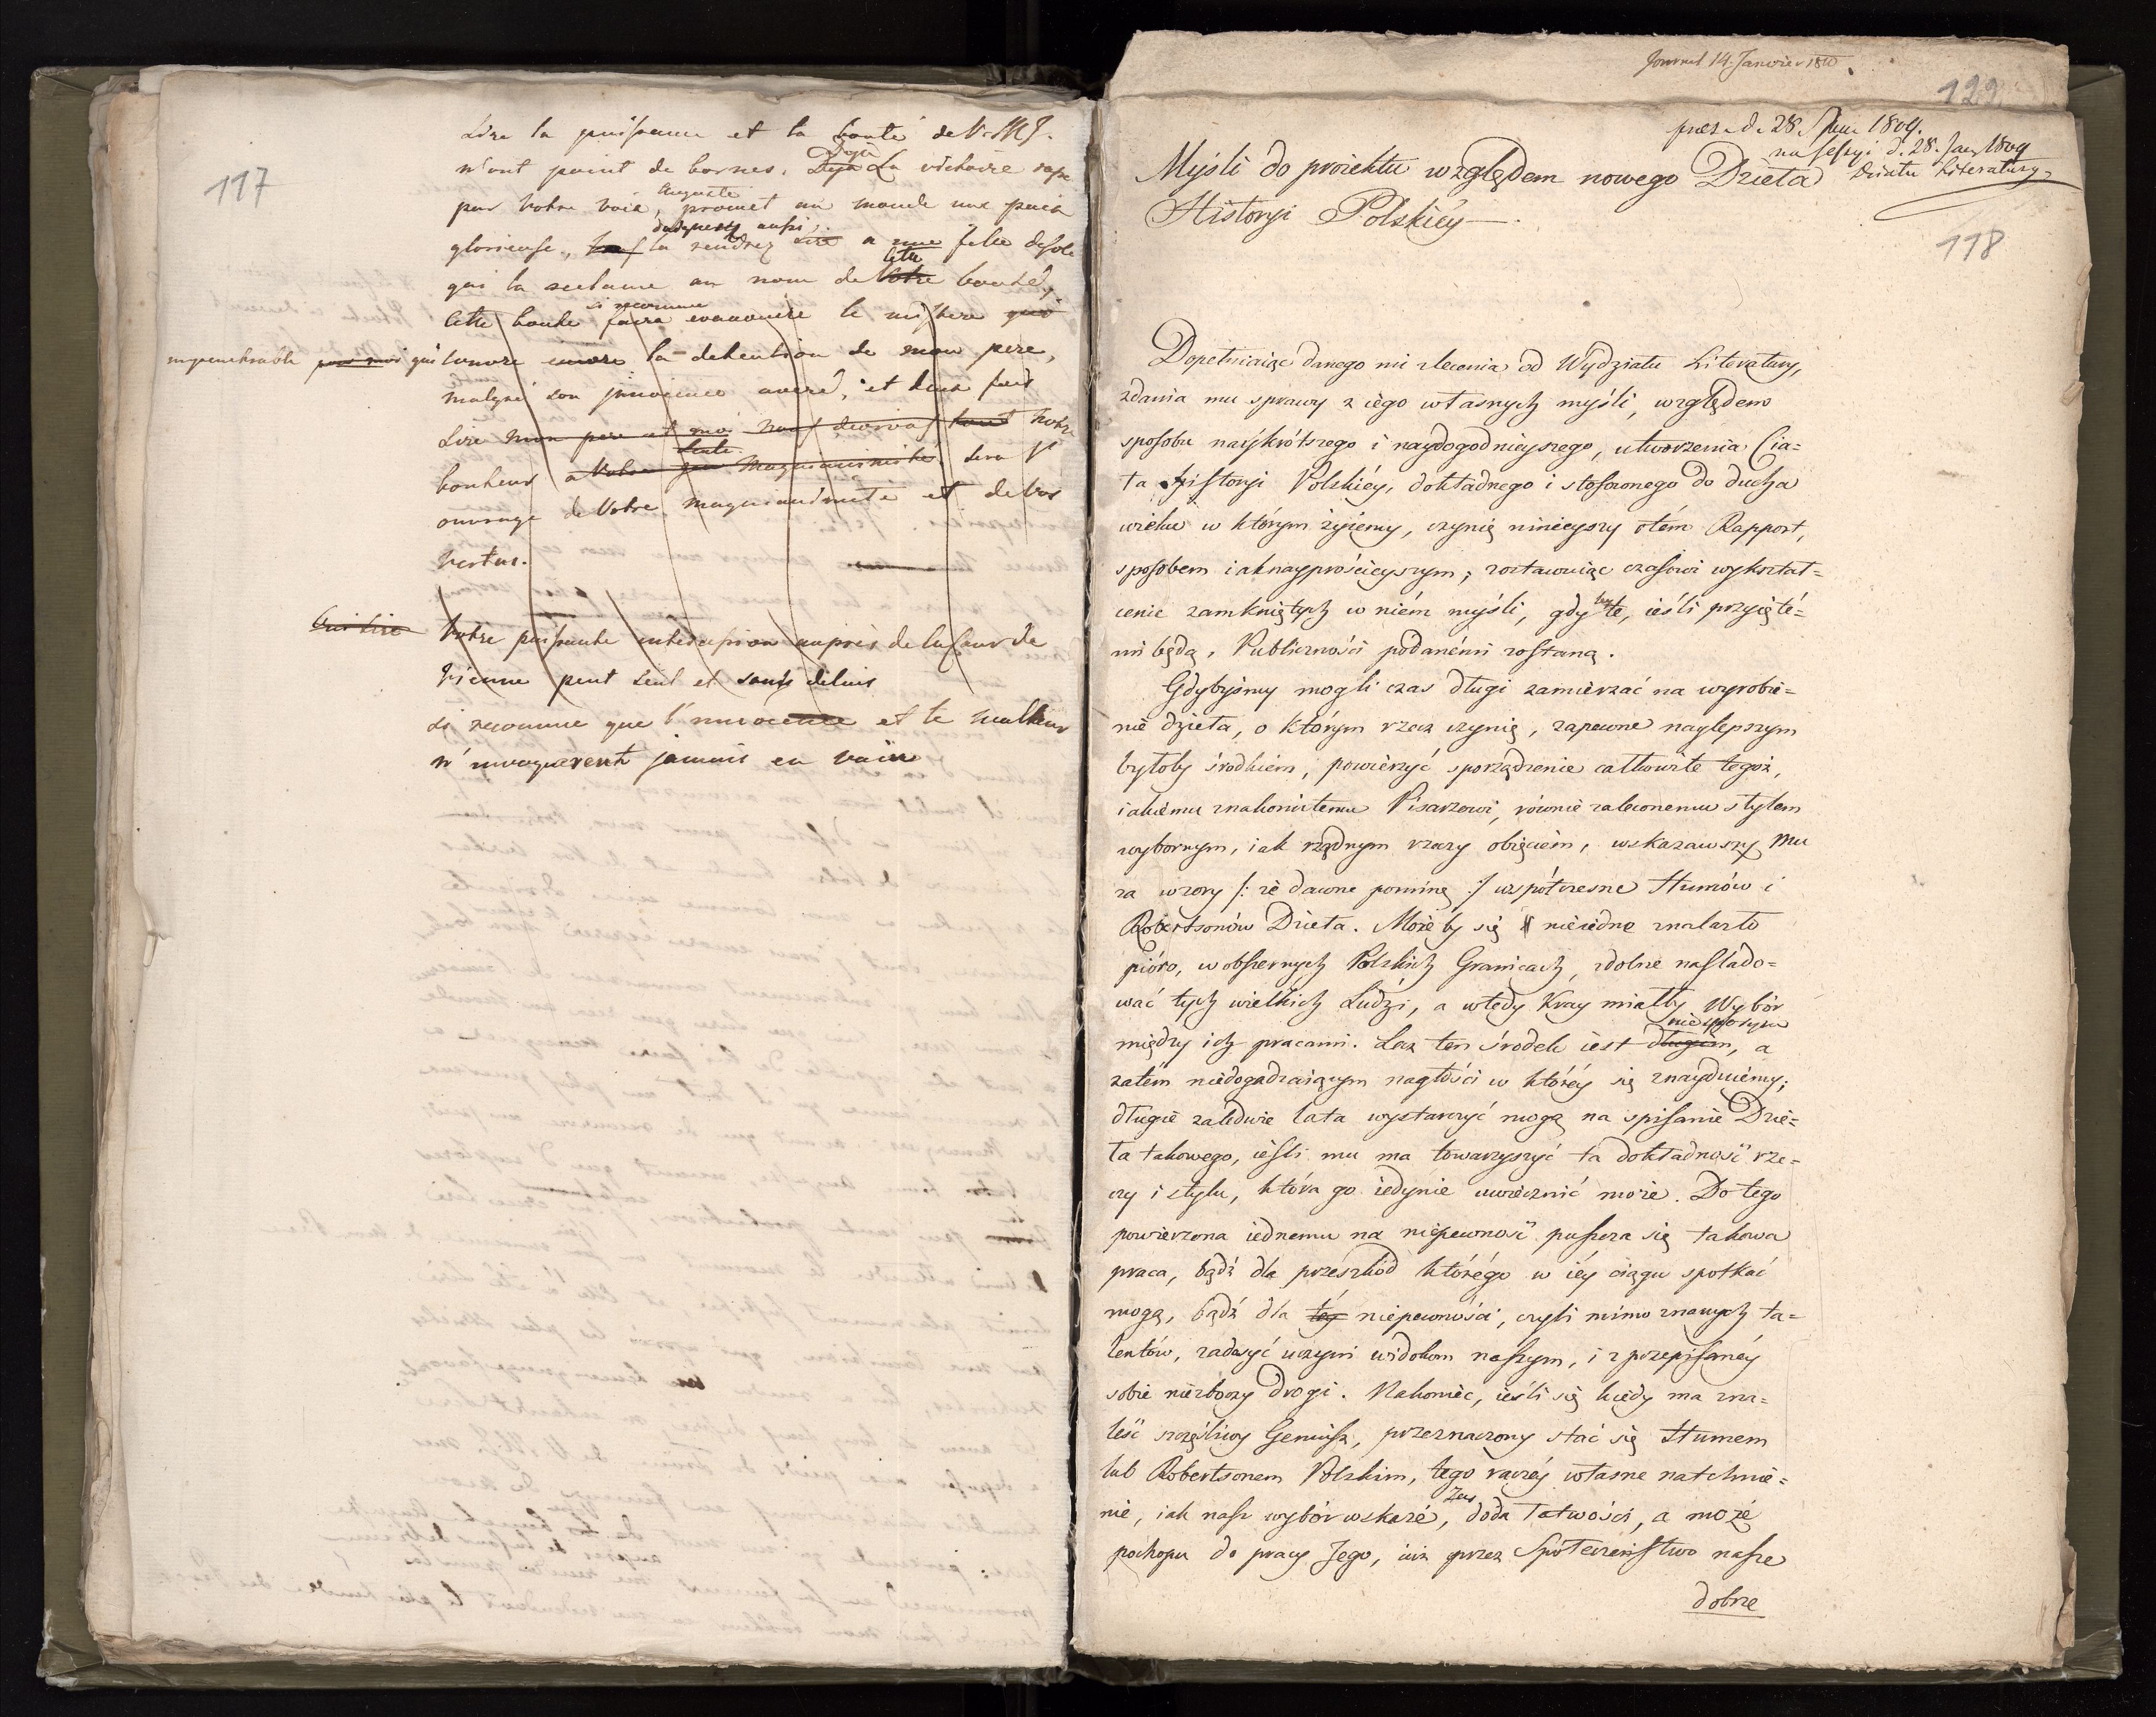 117
Sire la puissance et la bonté de V. M. J.
n'ont point de bornes. Deja Deja La victoire
par Votre voix, Auguste promet au monde une paix
glorieuse, Vous daignerez aussi, la rendrez Sire a une fille desolé
qui la reclame au nom de Votre cette bonté,
Cette bonté si reconnue fera evanouir le mistere qui
impenetrable pour moi qui couvre encore la detention de mon pere,
malgré son innocence averé, et deux fois
Sire mon pere et moi nous devrons tout notre
bonheur a Votre seule magnanimité. sera
ouvrage de Votre magnanimité et de Vos
vertus.
Oui Sire Votre puissante intercession auprès de la Cour de
Vienne peut seul et sans delais
si reconnue que l'innocence et le malheur
n'invoquerent jamais en vain
Journal 14. Janvier 1810.
122
prez. d. 28. 1809.
na sessyi d. 28. 1809
Działu Literatury
Myśli do proiektu względem nowego Dzieła
Historyi Polskiéy —.
118
Dopełniaiąc danego mi zlecenia od Wydziału Literatury,
zdania mu sprawy z iego własnych myśli, względem
sposobu nayskrótszego i naydogodnieyszego, utworzenia Cia=
ła Historyi Polskiéy, dokładnego i stosownego do ducha
wieku w którym żyiémy, czynię ninieyszy otém Rapport,
sposobem iaknayprościeyszym; zostawuiąc czasowi wykształ=
cenie zamkniętych w niém myśli, gdyby te, ieśli przyięté=
mi będą, Publiczności podanémi zostaną.
Gdybyśmy mogli czas długi zamierzać na wyrobie=
nie dzieła, o którym rzecz czynię, zapewne naylepszym
byłoby środkiem, powierzyć sporządzenie całkowite tegoż,
iakiemu znakomitemu Pisarzowi, równie zaleconemu stylem
wybornym, iak rządnym rzeczy obięciem, wskazawszy mu
za wzory /: że dawne pominę :/ współczesne Humów i
Robertsonów Dzieła. Możeby się nieiedne znalazło
pióro, w obszernych Polskich Granicach, zdolne naślado=
wać tych wielkich Ludzi, a wtedy Kray miałby Wybór
między ich pracami. Lecz ten środek iest długim, a
zatém niedogadzaiącym nagłości w któréy się znayduiemy;
długie zaledwie lata wystarczyć mogą na spisanie Dzie=
ła takowego, ieśli mu ma towarzyszyć ta dokładność rze=
czy i stylu, która go iedynie uwiecznić może. Do tego
powierzona iednemu na niepewność puszcza się takowa
praca, bądź dla przeszkód którego w iéy ciągu spotkać
mogą, bądź dla téy niepewności, czyli mimo znanych ta=
lentów, zadosyć uczyni widokom naszym, i z przepisanéy
sobie niezboczy drogi. Nakoniec, ieśli się kiedy ma zna=
leść szczęśliwy Geniusz, przeznaczony stać się Humem
lub Robertsonem Polskim, tego raczéy własne natchnie=
nie, iak nasz wybór wskaże, Zaś doda łatwości, a może
pochopu do pracy Jego, iuż przez Społeczeństwo nasze
dobrze